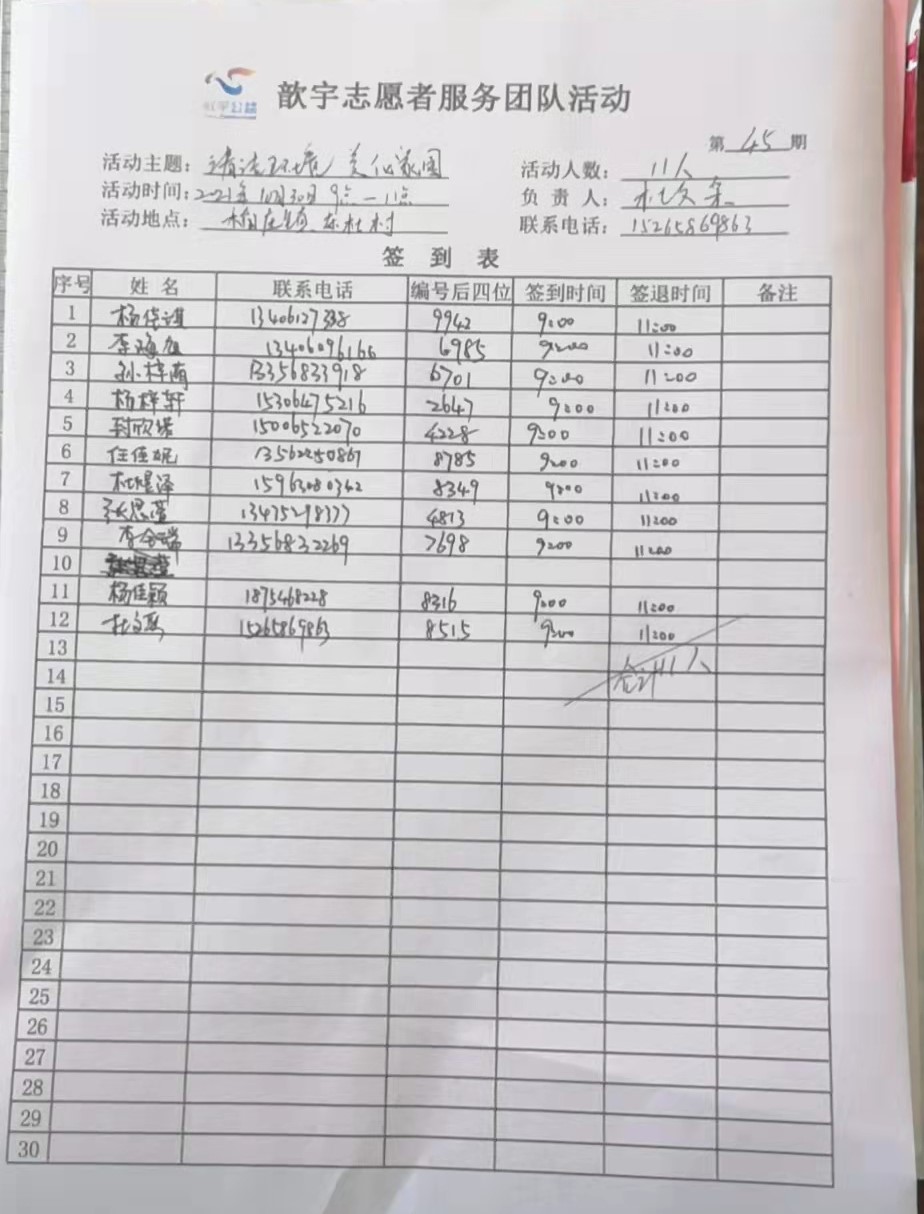 歆宇公益
歆宇志愿者服务团队活动
第 45 期
活动主题：清洁环境 美化家园 活动人数：11人
活动时间：2021年10月30日 9点—11点 负责人：杜文
活动地点：杨庄镇东杜村 联系电话：15265869863
签到表
序号 姓名 联系电话 编号后四位 签到时间 签退时间 备注
1 杨佳琪 13406127338 9942 9:00 11:00
2 李海旭 13406096166 6985 9:00 11:00
3 孙梓萌 13356833918 6701 9:00 11:00
4 杨梓轩 15306475216 2647 9:00 11:00
5 封欣 15006522070 4228 9:00 11:00
6 任佳妮 13562250867 8785 9:00 11:00
7 杜煜泽 15963080342 8349 9:00 11:00
8 张思蕊 13475298377 4813 9:00 11:00
9 李金瑞 13356832269 7698 9:00 11:00
10
11 杨佳颖 1875468228 8316 9:00 11:00
12 杜文 15265869863 8515 9:00 11:00
13
14 合计11人
15
16
17
18
19
20
21
22
23
24
25
26
27
28
29
30